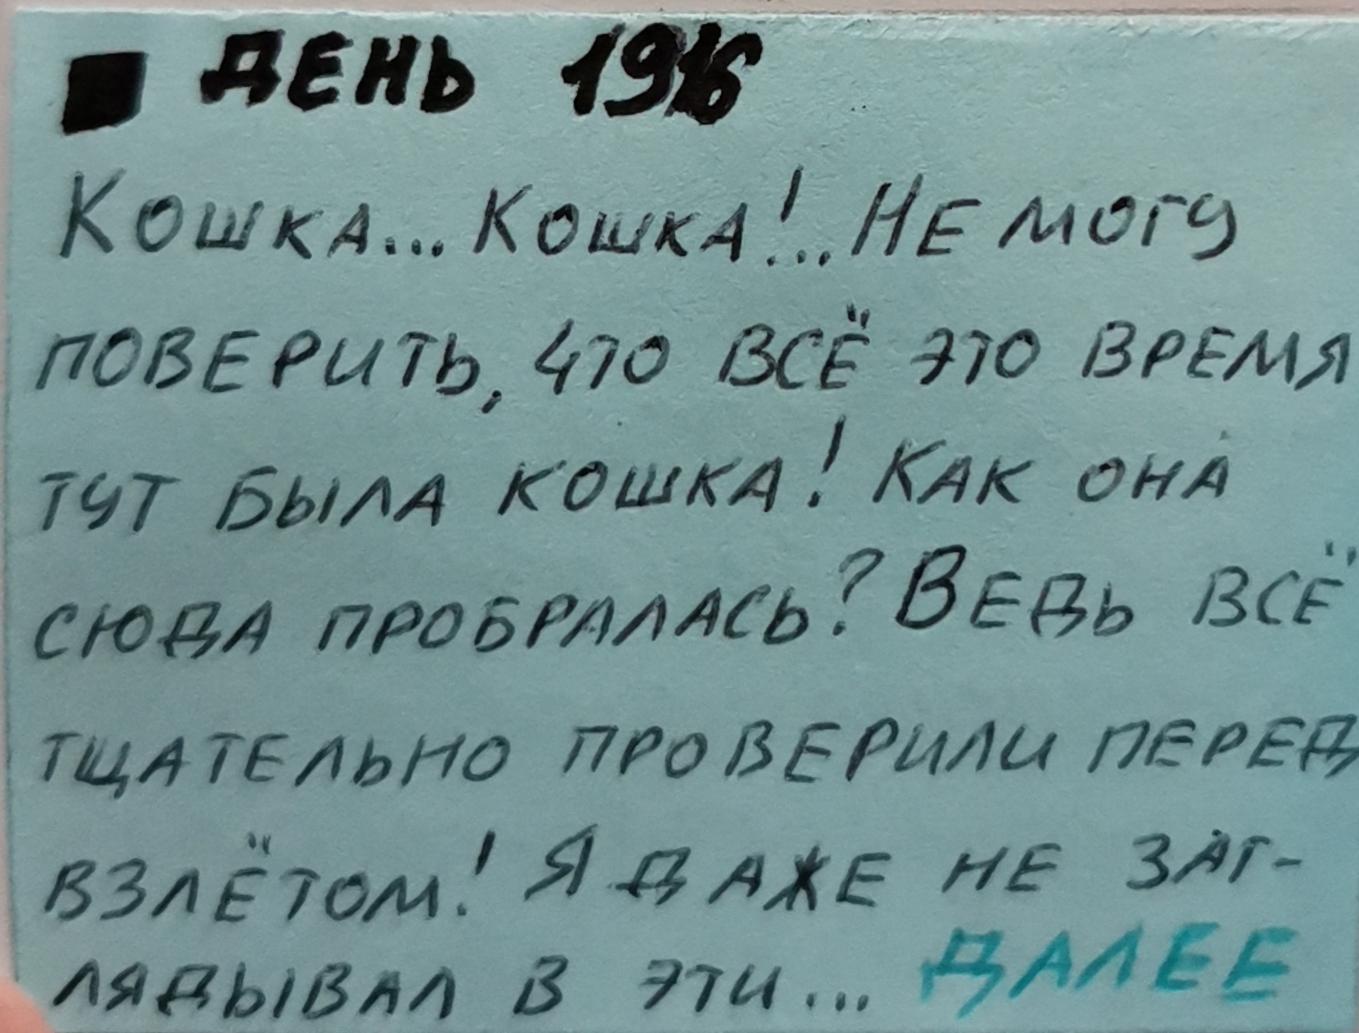 ■ ДЕНЬ 196
Кошка... Кошка!.. Не могу
поверить, что всё это время
тут была кошка! Как она
сюда пробралась? Ведь всё
тщательно проверили перед
взлётом! Я даже не заг-
лядывал в эти... ДАЛЕЕ